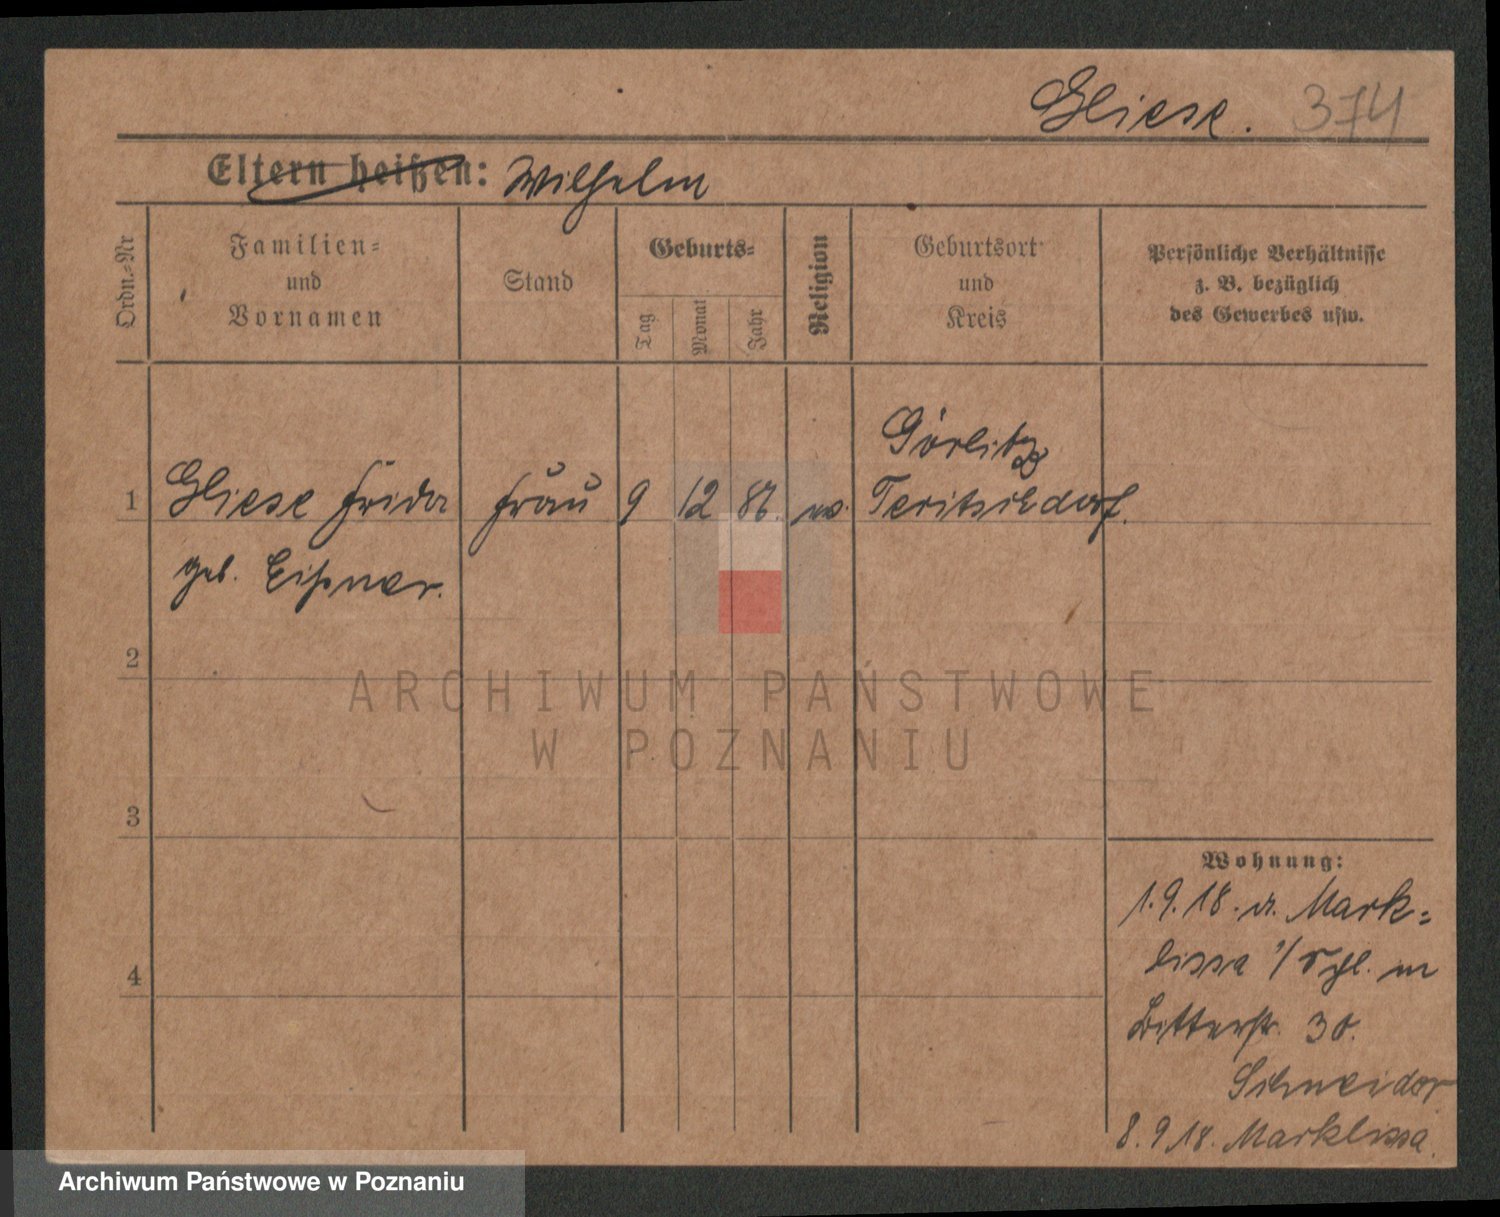 Gliese. 374
Eltern heißen: Wilhelm
Ordn.-Nr
Familien-
und
Vornamen
Stand
Geburts-
Tag
Monat
Jahr
Religion
Geburtsort
und
Kreis
Persönliche Verhältnisse
z. B. bezüglich
des Gewerbes usw.
Görlitz
1 Gliese Frida Frau 9 12 87.
geb. Eißner.
2
ARCHIWUM PAŃSTWOWE
W POZNANIU
3
Wohnung:
1.9.18. v. Mark-
lissa
4
Ritterstr. 30.
Schneider
8.9.18. Marklissa.
Archiwum Państwowe w Poznaniu